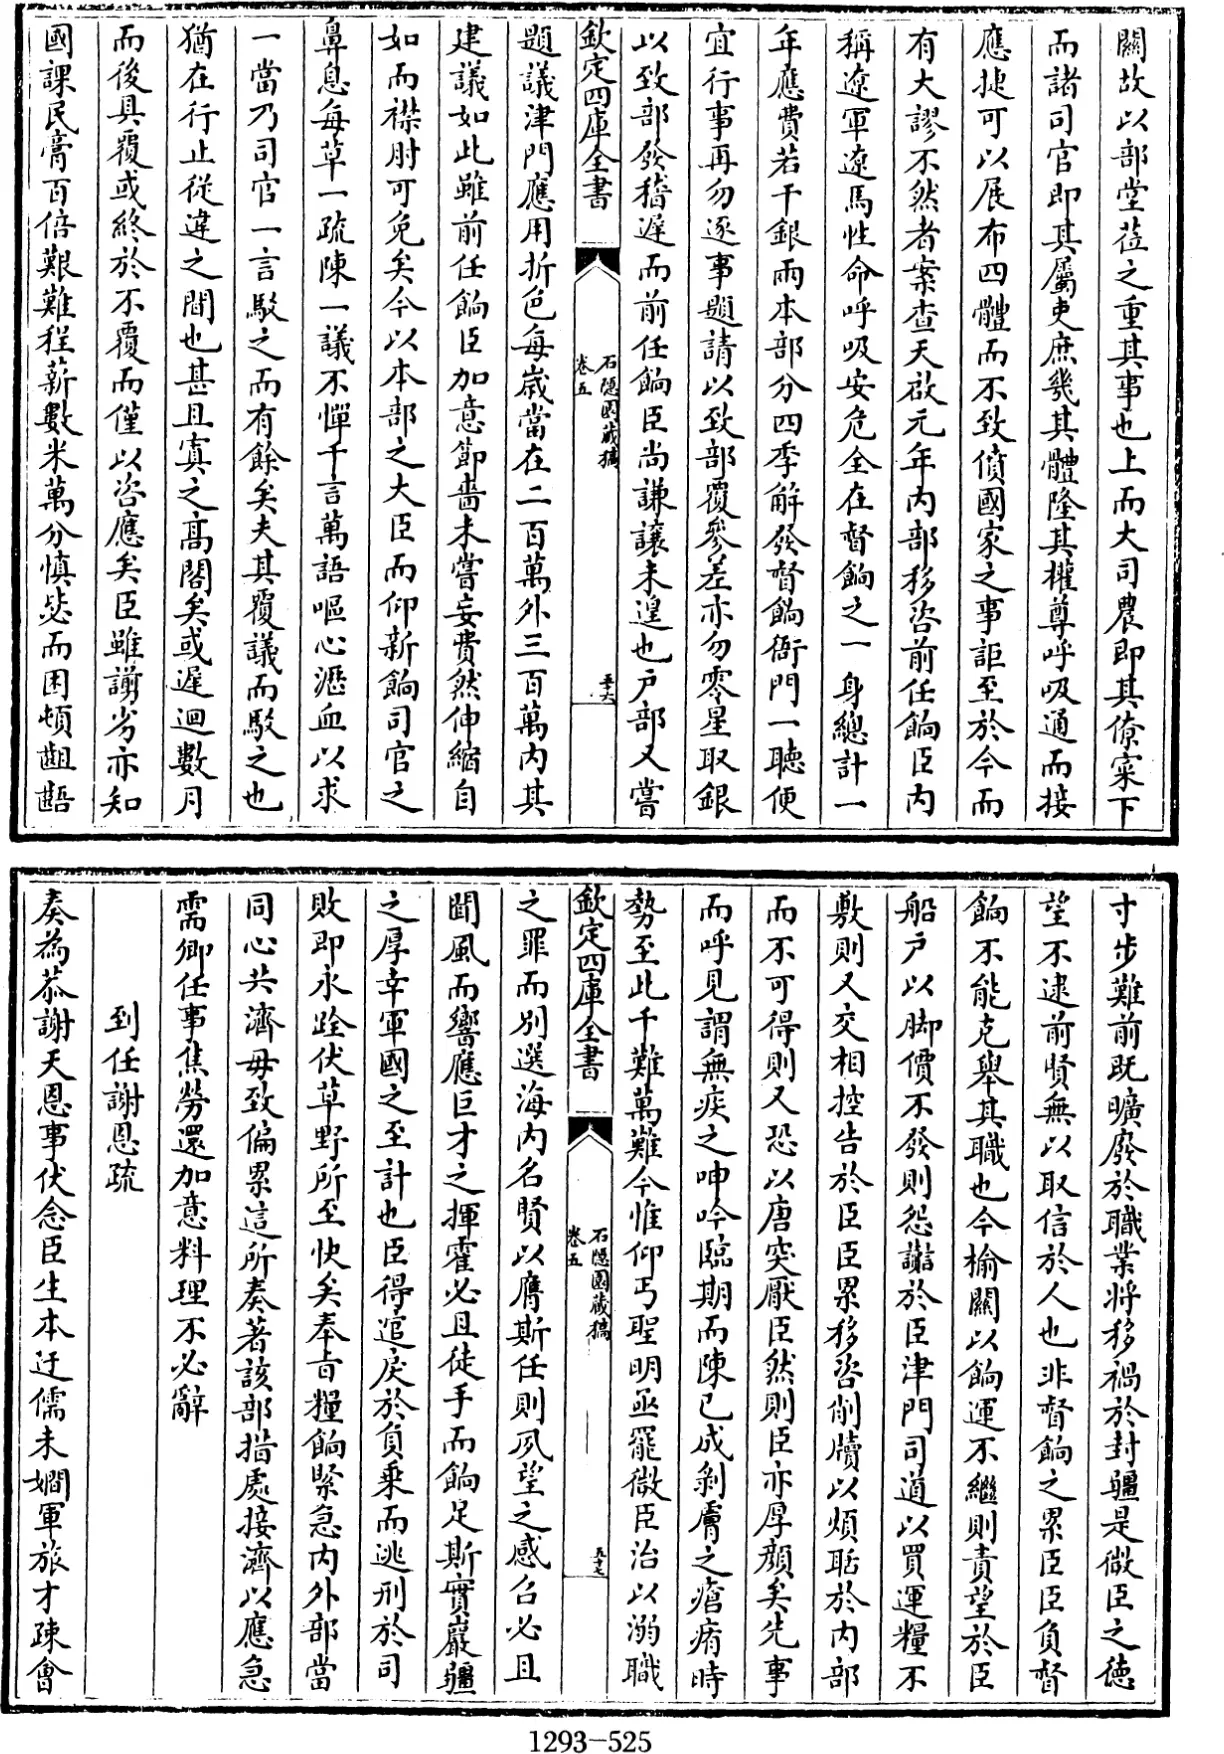 關故以部堂蒞之重其事也上而大司農即其僚寀下
而諸司官即其屬吏庶幾其體隆其權尊呼吸通而接
應捷可以展布四體而不致僨國家之事詎至於今而
有大謬不然者案查天啟元年內部移咨前任餉臣內
稱遼軍遼馬性命呼吸安危全在督餉之一身總計一
年應費若干銀兩本部分四季解發督餉衙門一聽便
宜行事再勿逐事題請以致部覆參差亦勿零星取銀
以致部發稽遲而前任餉臣尚謙讓未遑也戶部又嘗
欽定四庫全書
石隱園藏稿
卷五
五十六
題議津門應用折色每歲當在二百萬外三百萬內其
建議如此雖前任餉臣加意節嗇未嘗妄費然伸縮自
如而襟肘可免矣今以本部之大臣而仰新餉司官之
鼻息每草一疏陳一議不憚千言萬語嘔心瀝血以求
一當乃司官一言駁之而有餘矣夫其覆議而駁之也
猶在行止從違之間也甚且寘之高閣矣或遲迴數月
而後具覆或終於不覆而僅以咨應矣臣雖謭劣亦知
國課民膏百倍艱難程薪數米萬分慎毖而困頓齟齬
寸步難前既曠廢於職業將移禍於封疆是微臣之德
望不逮前賢無以取信於人也非督餉之累臣臣負督
餉不能克舉其職也今榆關以餉運不繼則責望於臣
船戶以腳價不發則怨讟於臣津門司道以買運糧不
敷則又交相控告於臣臣累移咨削牘以煩聒於內部
而不可得則又恐以唐突厭臣然則臣亦厚顏矣先事
而呼見謂無疾之呻吟臨期而陳已成剝膚之瘡痏時
勢至此千難萬難今惟仰丐聖明亟罷微臣治以溺職
欽定四庫全書
石隱園藏稿
卷五
五十七
之罪而別選海內名賢以膺斯任則夙望之感召必且
聞風而響應巨才之揮霍必且徒手而餉足斯實巖疆
之厚幸軍國之至計也臣得逭戾於負乘而逃刑於司
敗即永跧伏草野所至快矣奉旨糧餉緊急內外部當
同心共濟毋致偏累這所奏著該部措處接濟以應急
需卿任事焦勞還加意料理不必辭
到任謝恩疏
奏為恭謝天恩事伏念臣生本迂儒未嫺軍旅才疎會
1293-525